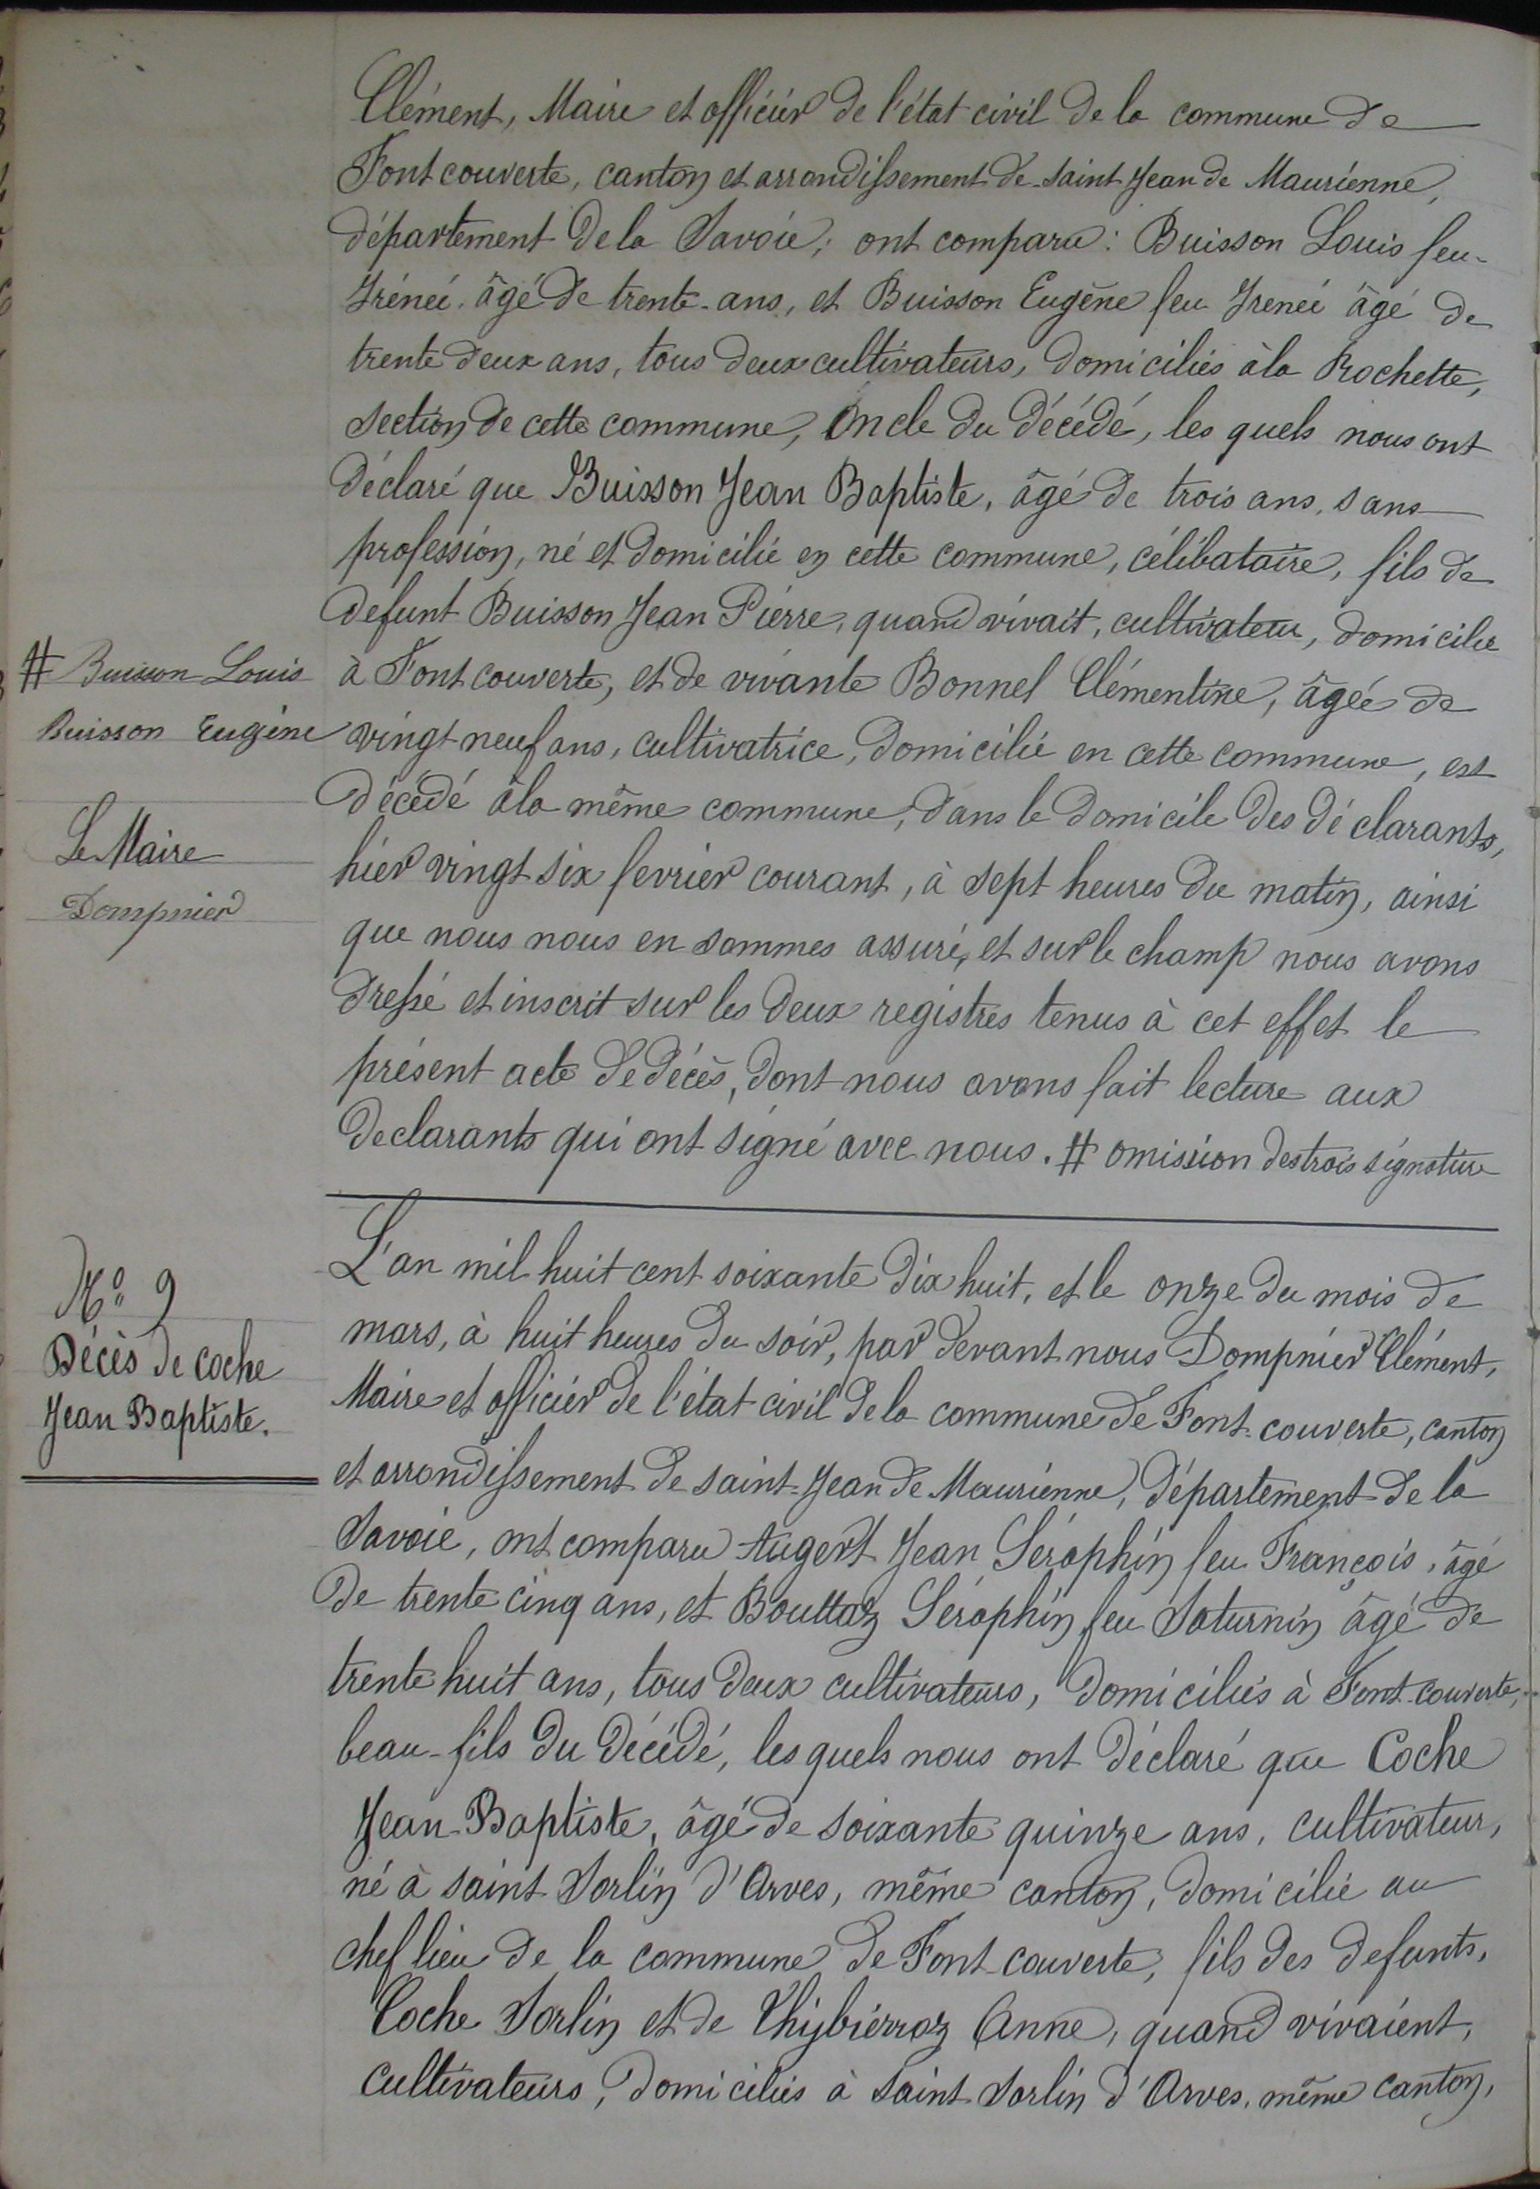 Clément, Maire et officier de l'état civil de la commune de
Fontcouverte, canton et arrondissement de Saint Jean de Maurienne,
département de la Savoie; ont comparu: Buisson Louis feu
Irénée âgé de trente ans, et Buisson Eugène feu Irenée âgé de
trente deux ans, tous deux cultivateurs, domiciliés à la Rochette,
section de cette commune, Oncle du décédé, les quels nous ont
déclaré que Buisson Jean Baptiste, âgé de trois ans, sans
profession, né et domicilié en cette commune, célibataire, fils de
defunt Buisson Jean Pierre, quand vivait, cultivateur, domicilié
à Fontcouverte, et de vivante Bonnel Clémentine, âgée de
vingt neuf ans, cultivatrice, domicilié en cette commune, est
décédé à la même commune, dans le domicile des déclarants,
hier vingt six fevrier courant, à sept heures du matin, ainsi
que nous nous en sommes assuré, et sur le champ nous avons
dressé et inscrit sur les deux registres tenus à cet effet le
présent acte de décès, dont nous avons fait lecture aux
declarants qui ont signé avec nous. # omission des trois signature
# Buisson Louis
Buisson Eugène
Le Maire
Dompnier
N° 9
Décès de Coche
Jean Baptiste.
L'an mil huit cent soixante dix huit, et le onze du mois de
mars, à huit heures du soir, par devant nous Dompnier Clément,
Maire et officier de l'état civil de la commune de Font-couverte, canton
et arrondissement de saint-Jean de Maurienne, département de la
Savoie, ont comparu Augert Jean Séraphin feu François, âgé
de trente cinq ans, et Bouttaz Séraphin feu Saturnin âgé de
trente huit ans, tous deux cultivateurs, domiciliés à Font-couverte,
beau-fils du décédé, les quels nous ont déclaré que Coche
Jean-Baptiste, âgé de soixante quinze ans, cultivateur,
né à saint Sorlin d'Arves, même canton, domicilié au
chef lieu de la commune de Font-couverte, fils des defunts,
Coche Sorlin et de Thybierroz Anne, quand vivaient,
cultivateurs, domiciliés à Saint Sorlin d'Arves, même canton,